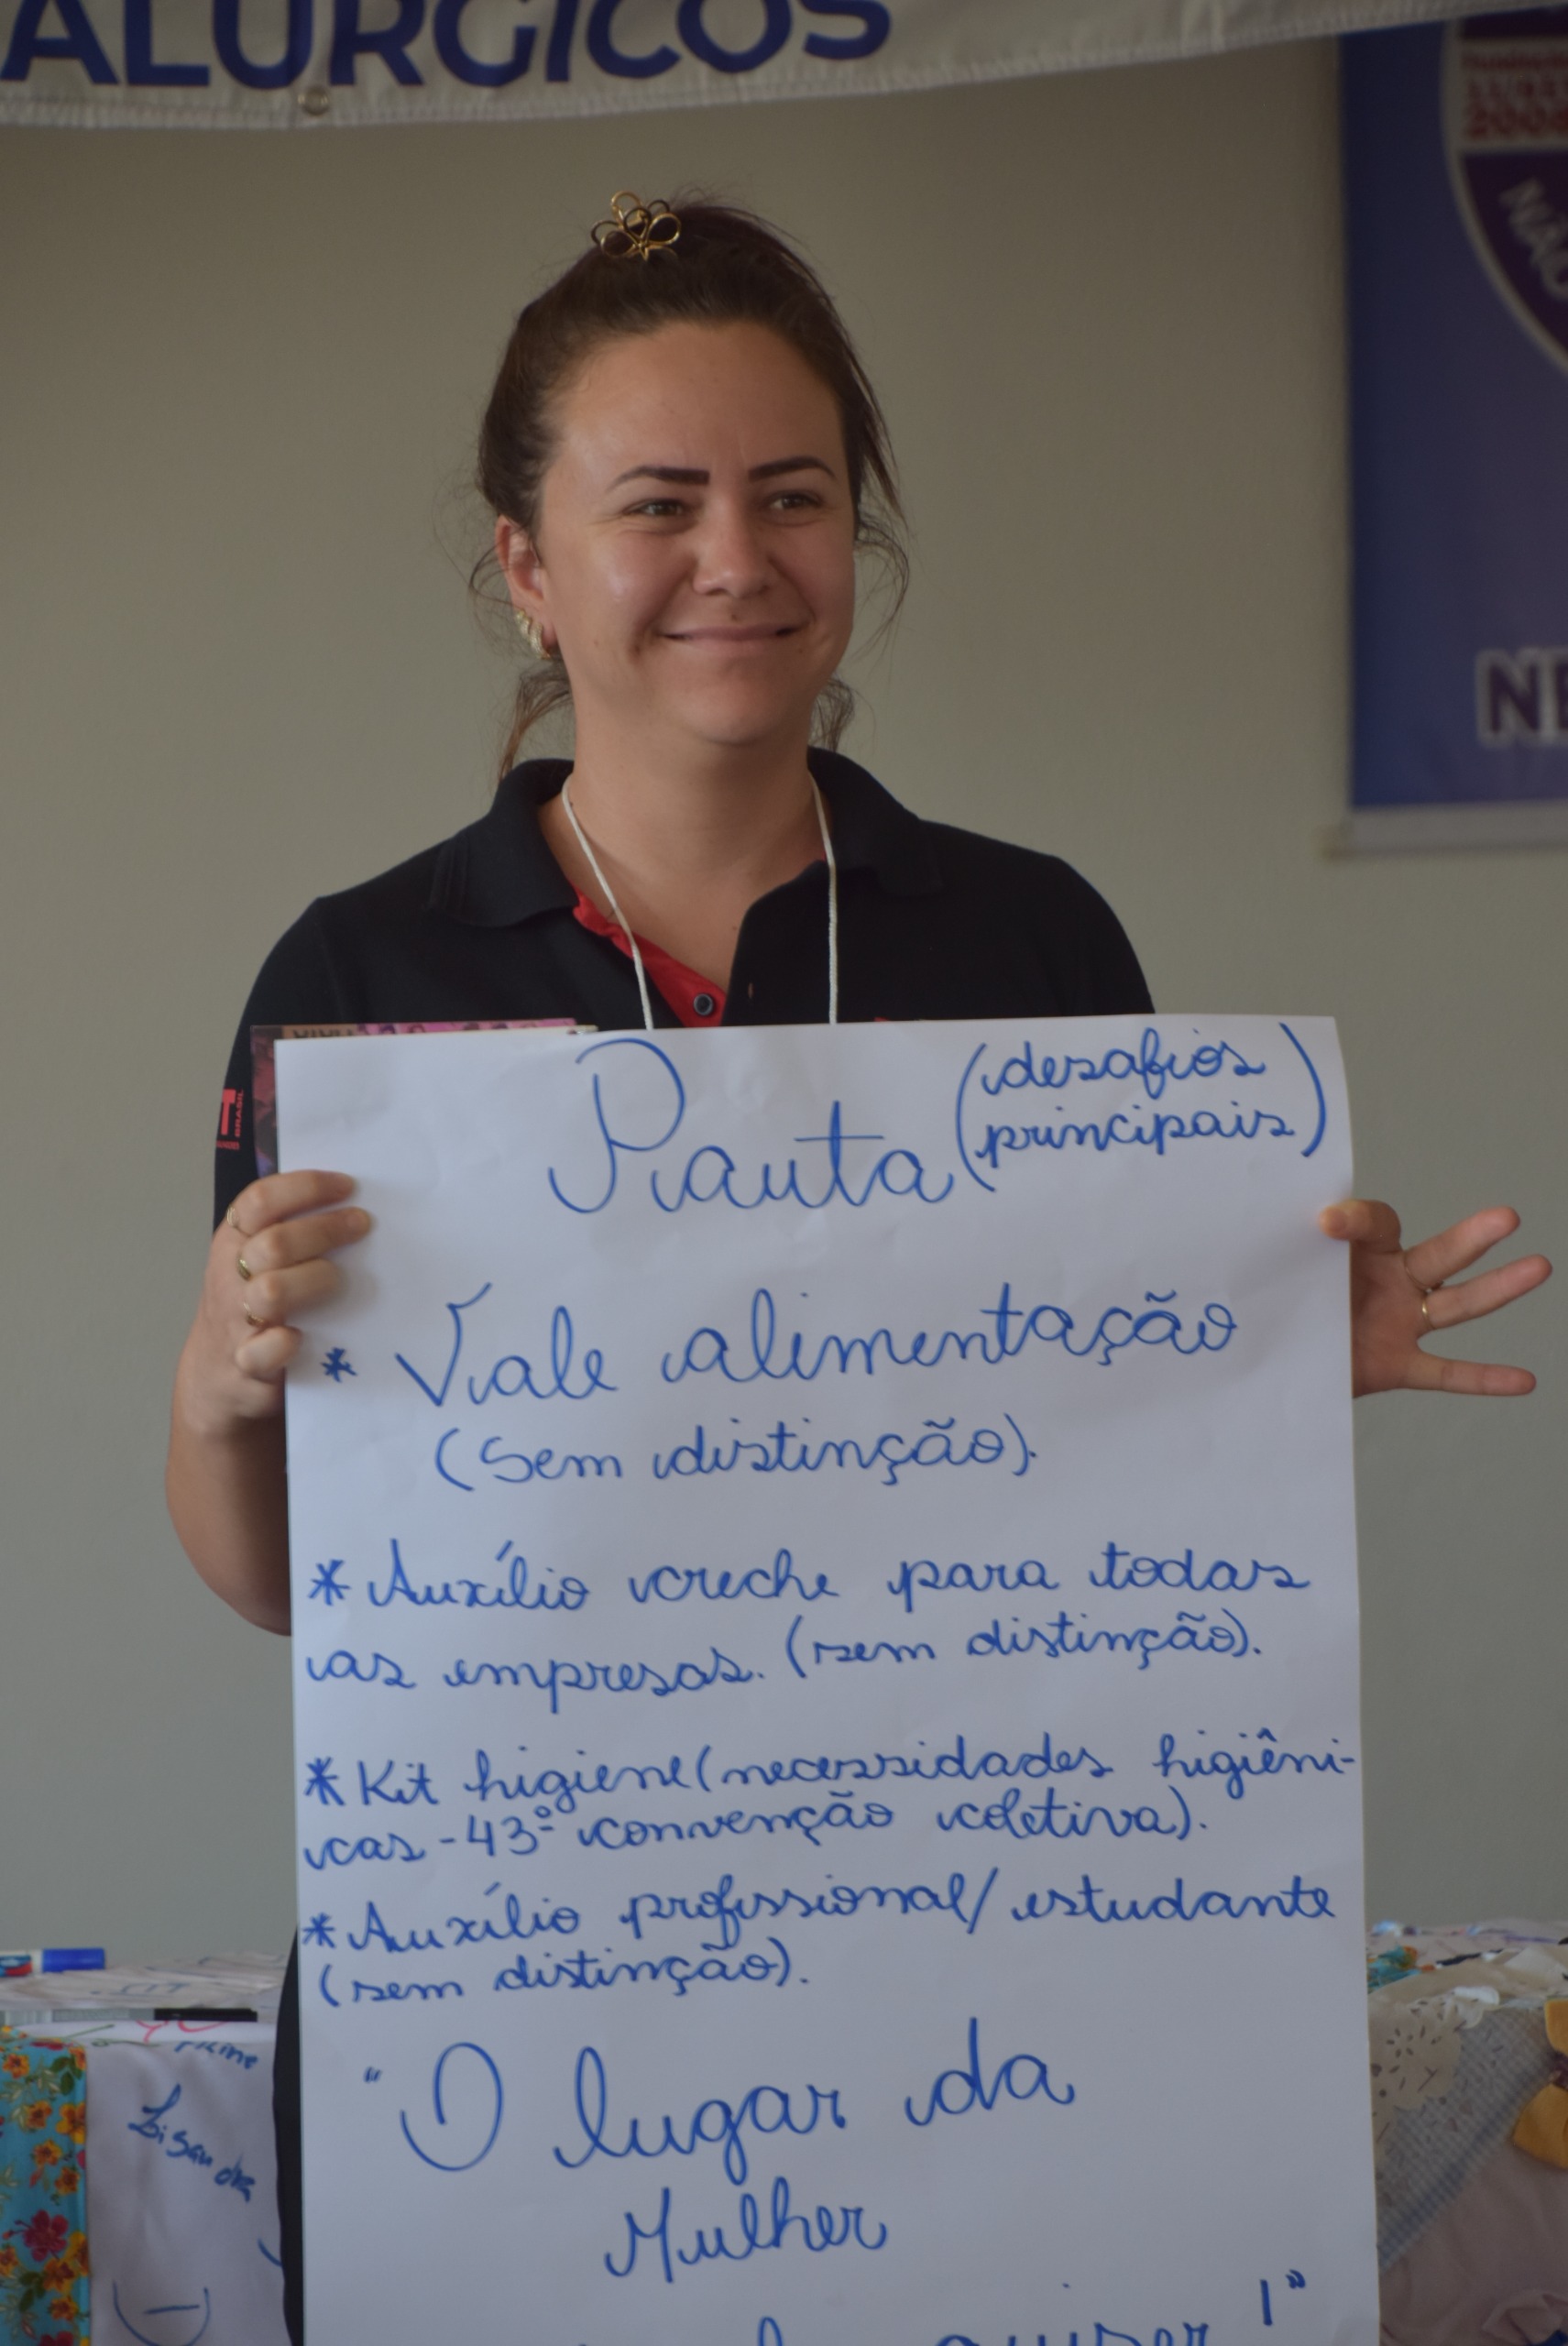 ALÚRGICOS
2008
NÃO
BRASIL
Pauta (desafios
principais)
* Vale alimentação
(Sem distinção).
* Auxílio creche para todas
as empresas. (sem distinção).
* Kit higiene (necessidades higiêni-
cas - 43º convenção coletiva).
* Auxílio profissional/estudante
(sem distinção).
"O lugar da
Mulher
quiser!"
Lisandra